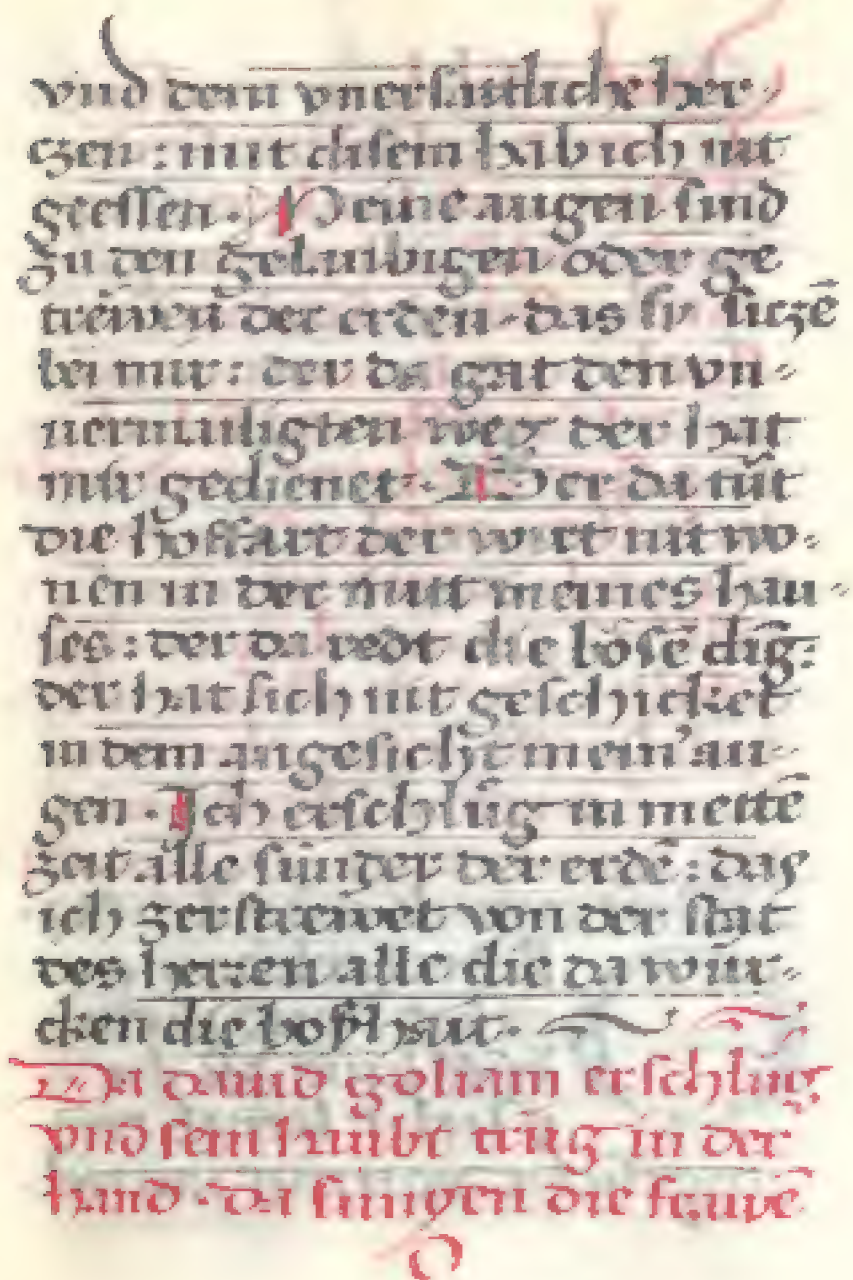 vnd dem vnersätliche her-
czen : mit disem hab ich nit
geessen. Meine augen sind
zu den gelaubigen oder ge
trewen der erden. das sy siczē
bei mir: der da gat den vn-
uermailigten weg der hat
mir gedienet. Wer da tůt
die hoffart der wirt nit wo-
nen in der mitt meines hau-
ses: der da redt die bösē dīg:
der hat sich nit geschicket
in dem angesicht mein' au-
gen. Ich erschlůg in mettē
zeit alle sünder der erdē: das
ich zerstrewet von der stat
des herren alle die da wür-
cken die boßhait.
Da dauid goliam erschlůg
vnd sein haubt trůg in der
hand. da sungen die frawē